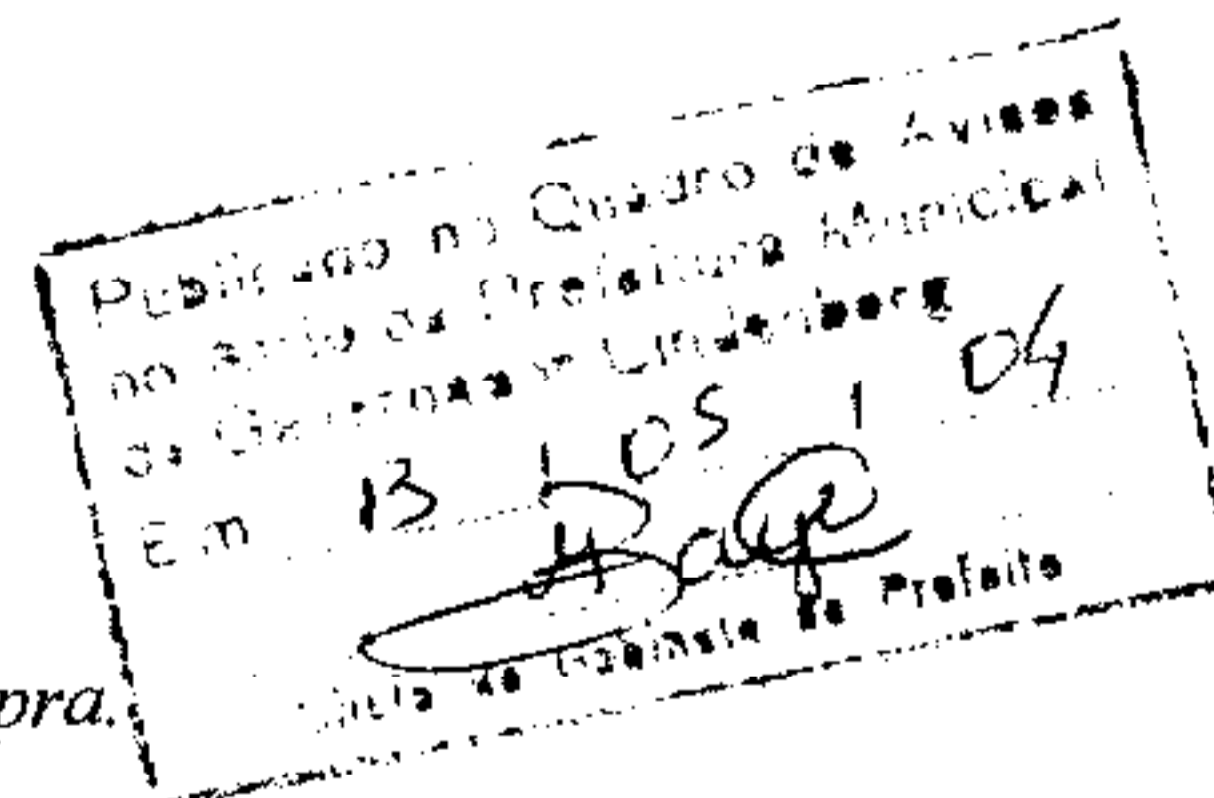 Publicado no Quadro de Avisos
no átrio da Prefeitura Municipal
de Governador Lindenberg
Em 13 / 05 / 04
Chefe de Gabinete do Prefeito
pra.